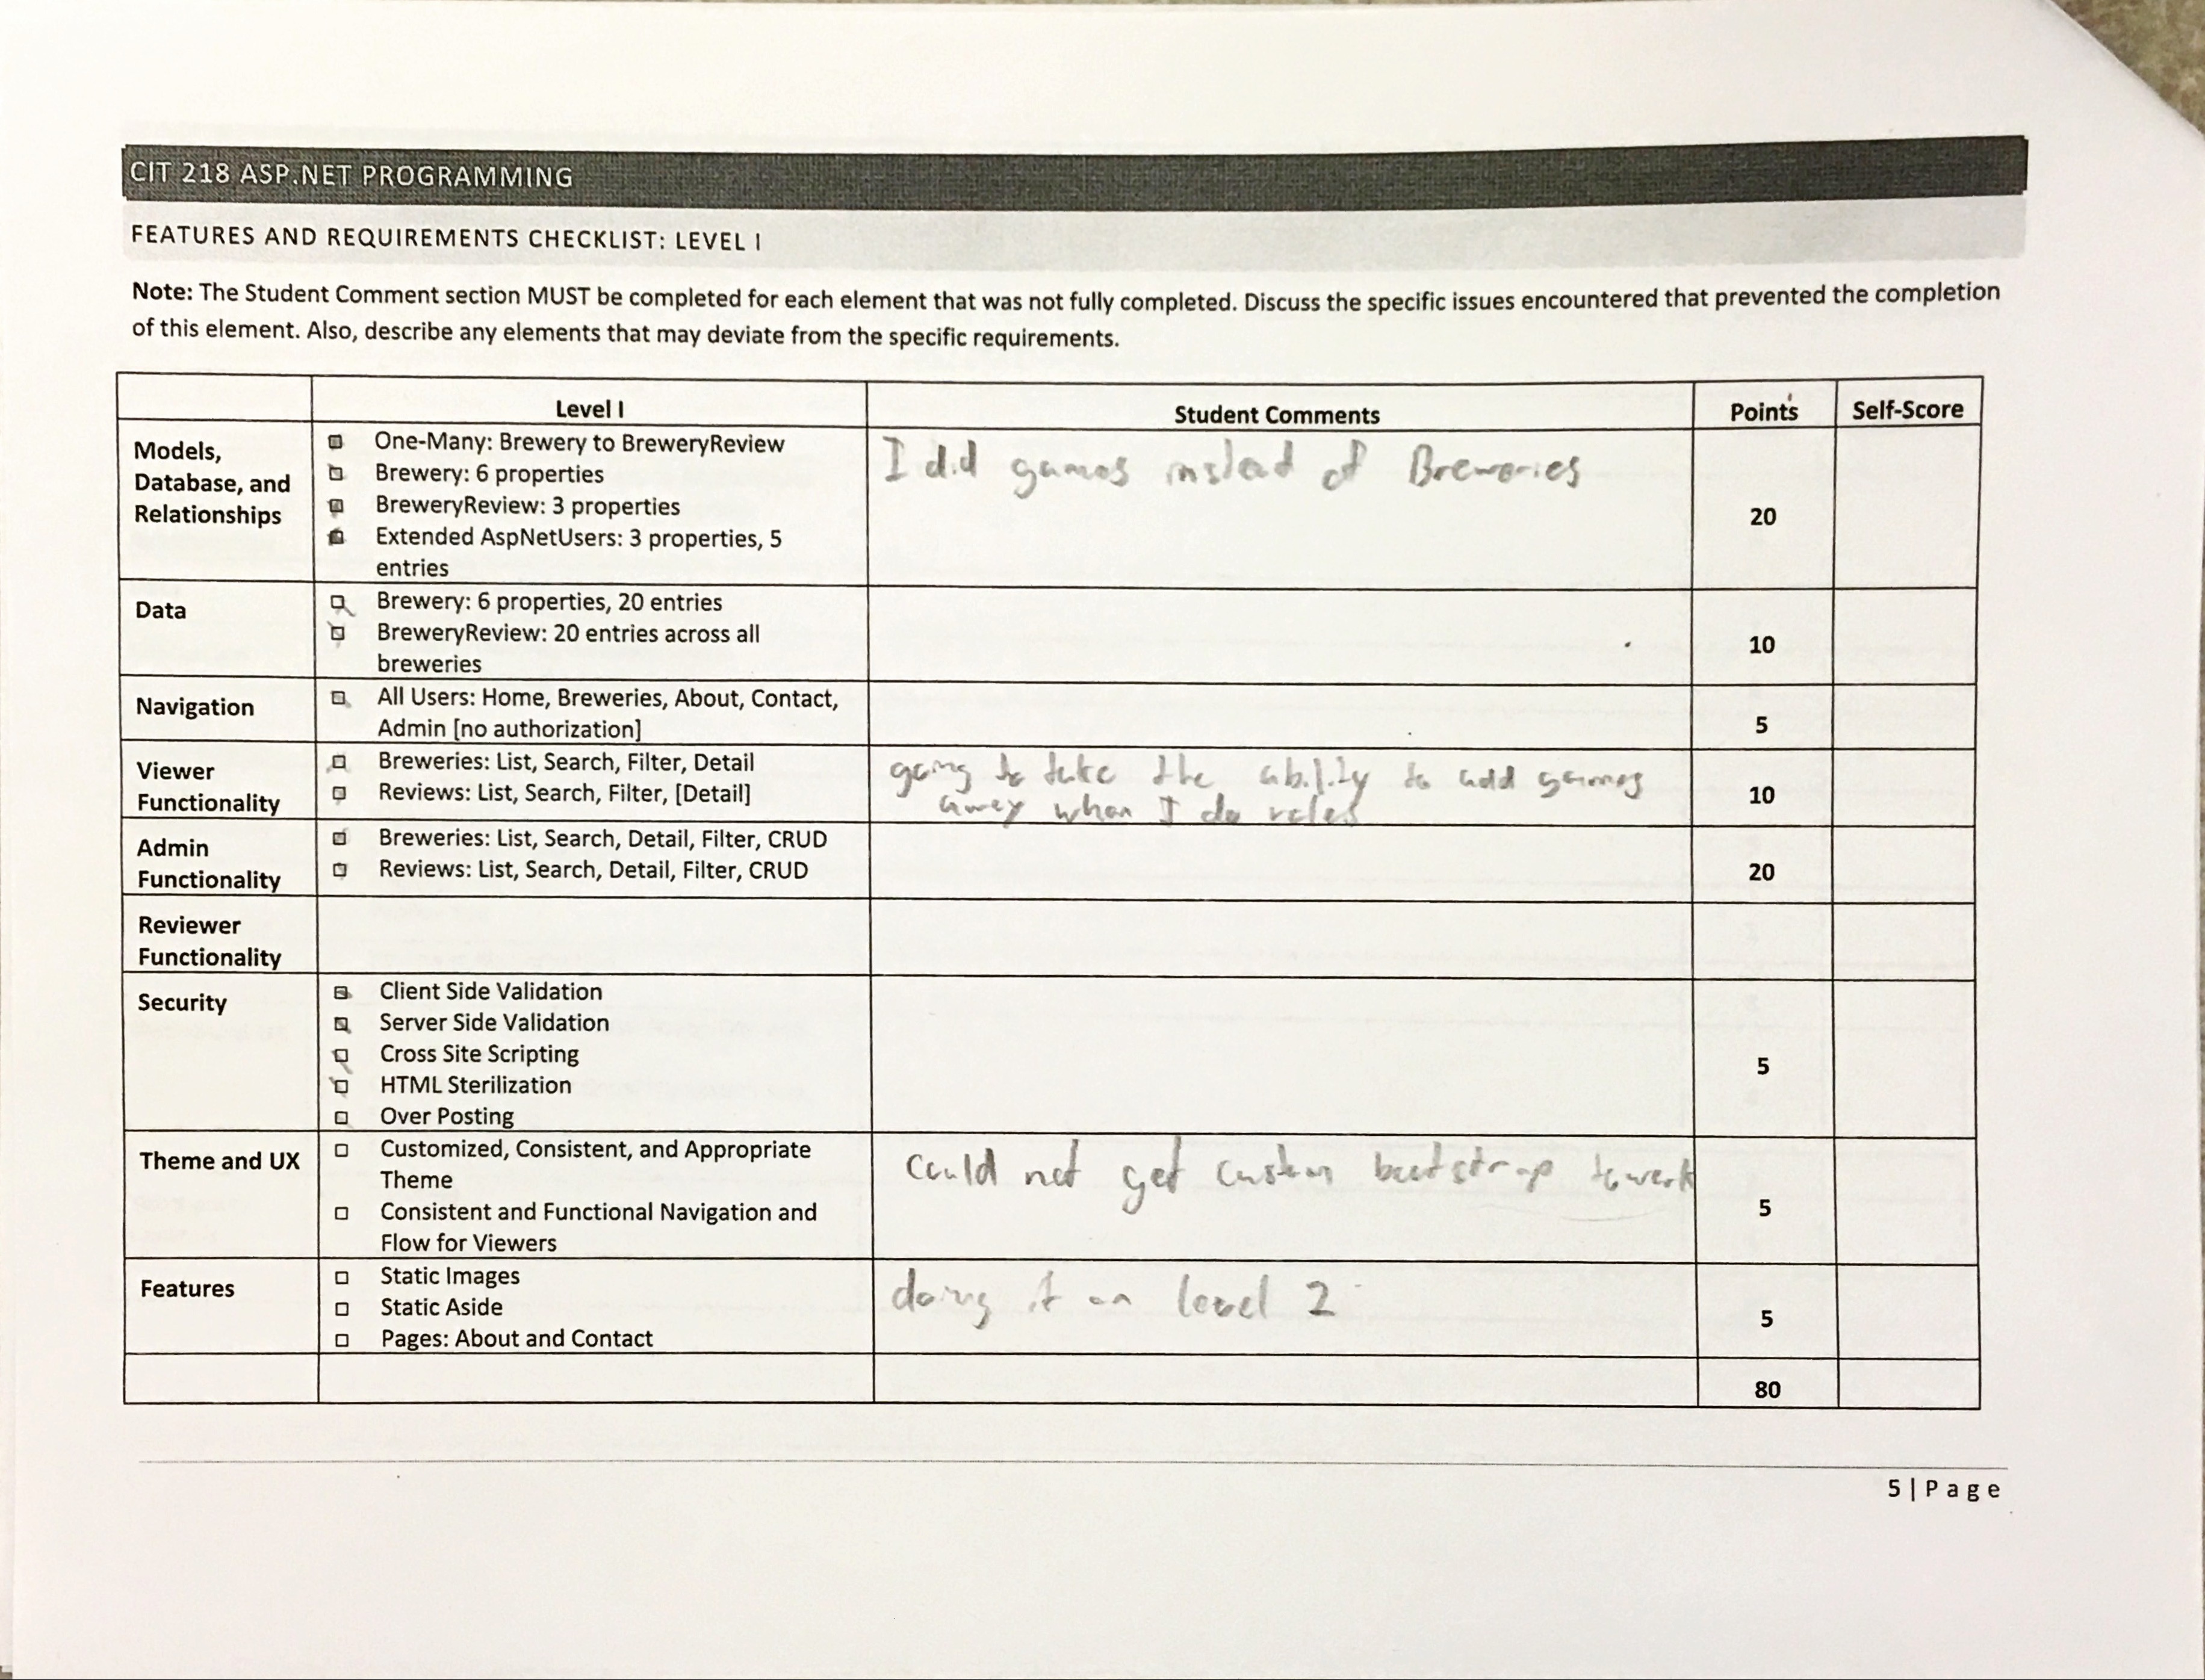 CIT 218 ASP.NET PROGRAMMING
FEATURES AND REQUIREMENTS CHECKLIST: LEVEL I
Note: The Student Comment section MUST be completed for each element that was not fully completed. Discuss the specific issues encountered that prevented the completion
of this element. Also, describe any elements that may deviate from the specific requirements.
Level I Student Comments Points Self-Score
Models,
Database, and
Relationships
One-Many: Brewery to BreweryReview
Brewery: 6 properties
BreweryReview: 3 properties
Extended AspNetUsers: 3 properties, 5
entries
I did games instead of Breweries
20
Data
Brewery: 6 properties, 20 entries
BreweryReview: 20 entries across all
breweries
10
Navigation
All Users: Home, Breweries, About, Contact,
Admin [no authorization]
5
Viewer
Functionality
Breweries: List, Search, Filter, Detail
Reviews: List, Search, Filter, [Detail]
going to take the ability to add games
away when I do roles
10
Admin
Functionality
Breweries: List, Search, Detail, Filter, CRUD
Reviews: List, Search, Detail, Filter, CRUD
20
Reviewer
Functionality
Security
Client Side Validation
Server Side Validation
Cross Site Scripting
HTML Sterilization
Over Posting
5
Theme and UX
Customized, Consistent, and Appropriate
Theme
Consistent and Functional Navigation and
Flow for Viewers
Could not get custom bootstrap to work
5
Features
Static Images
Static Aside
Pages: About and Contact
doing it on level 2
5
80
5 | Page